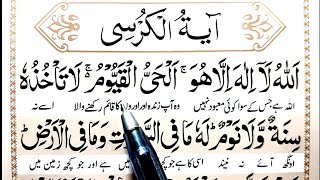 آيَةُ الْكُرْسِى
اَللّٰهُ لَآ اِلٰهَ اِلَّا هُوَ ۚ اَلْحَىُّ الْقَيُّوْمُ ۚ لَا تَاْخُذُهٗ
اللہ ہے جس کے سوا کوئی معبود نہیں وہ آپ زندہ اور اوروں کا قائم رکھنے والا اسے نہ
سِنَةٌ وَّلَا نَوْمٌ ؕ لَهٗ مَا فِى السَّمٰوٰتِ وَمَا فِى الْاَرْضِ ؕ
اونگھ آئے نہ نیند اسی کا ہے جو کچھ میں ہے اور جو کچھ زمین میں